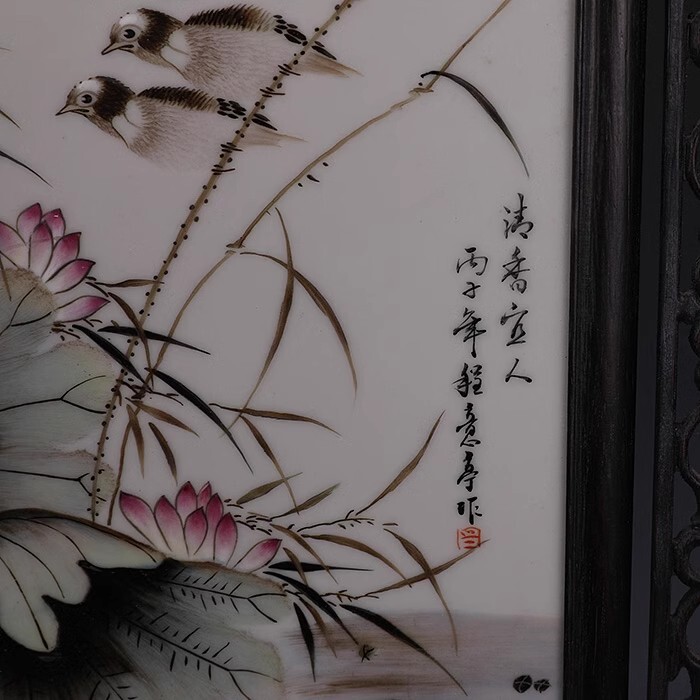 清香宜人
丙子年程意亭作